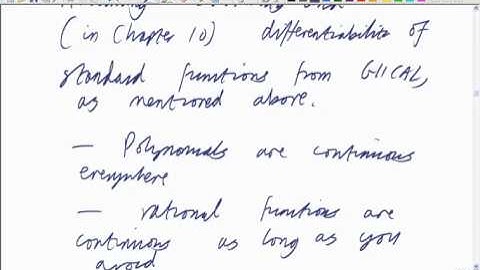 (in Chapter 10) differentiability of
standard functions from G11CAL,
as mentioned above.
— Polynomials are continuous
everywhere
— rational functions are
continuous as long as you
avoid